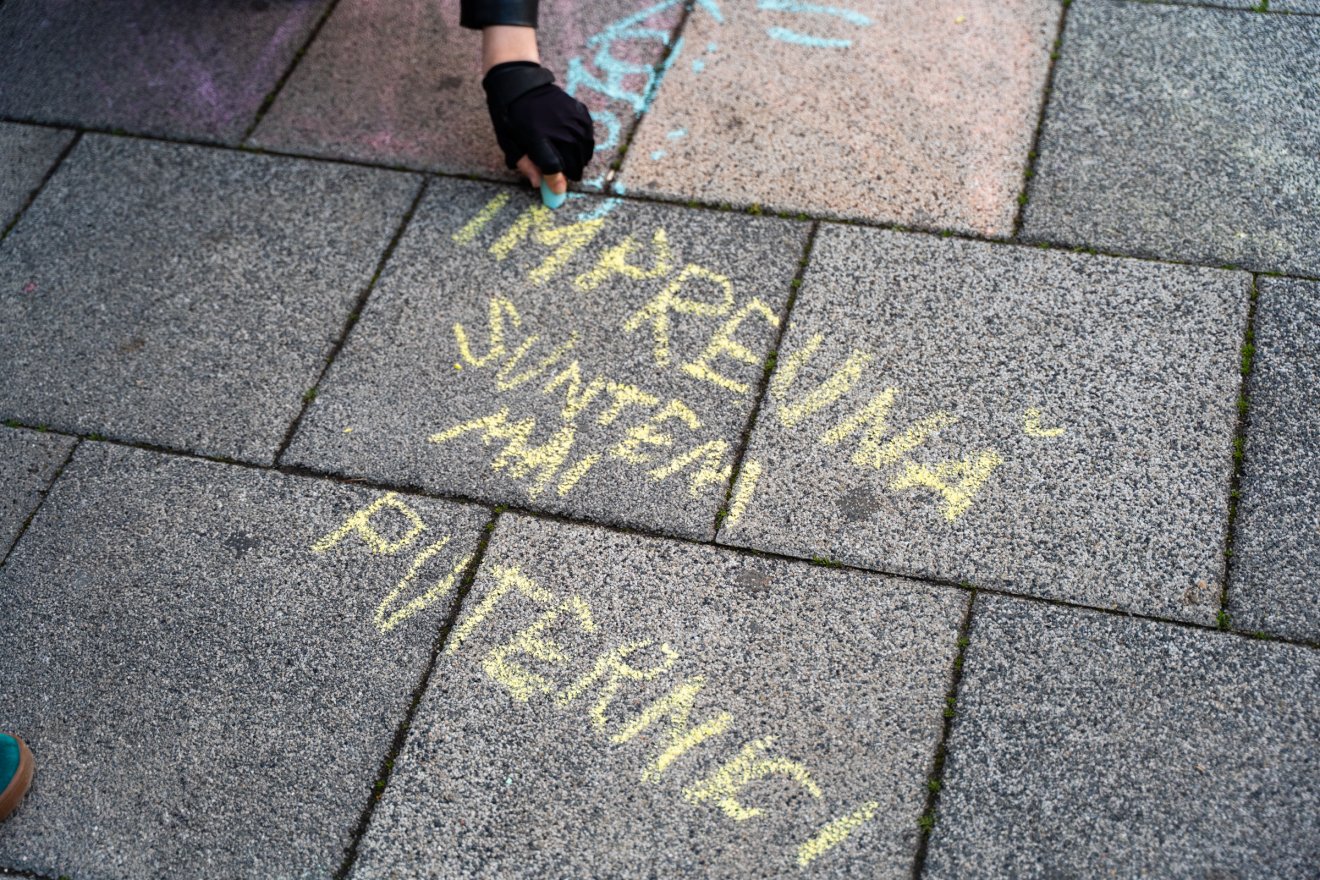 IMPREUNĂ
SUNTEM
MAI
PUTERNICI